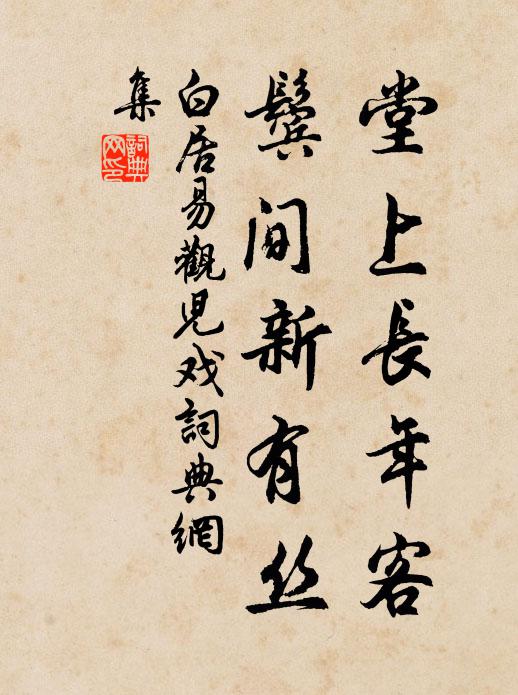 堂上長年客
鬢間新有丝
白居易觀児戏詞典網
集
詞典
网印